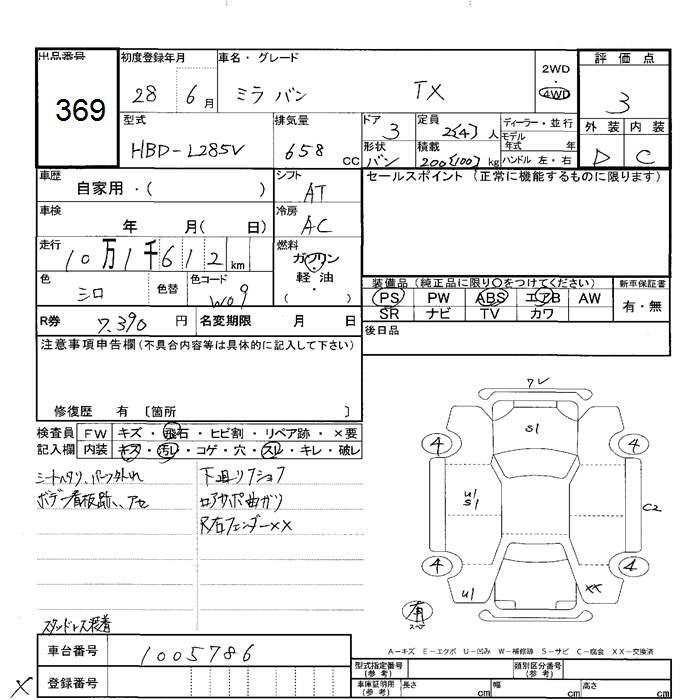 出品番号
369
初度登録年月
28 6月
車名・グレード
ミラ バン TX
2WD
4WD
評価点
3
外装 内装
D C
型式
HBD-L285V
排気量
658 CC
ドア
3
形状
バン
定員
2(4)人
積載
200(100)kg
ディーラー・並行
モデル
年式 年
ハンドル 左・右
車歴
自家用・( )
シフト
AT
セールスポイント (正常に機能するものに限ります)
車検
年 月( 日)
冷房
AC
走行
10万1千612km
燃料
ガソリン
軽油
( )
色
シロ
色替
色コード
W09
装備品(純正品に限り○をつけてください)
新車保証書
PS PW ABS エアB AW
SR ナビ TV カワ
有・無
R券
7.390円
名変期限 月 日
後日品
注意事項申告欄(不具合内容等は具体的に記入して下さい)
修復歴 有 〔箇所 〕
検査員
記入欄
FW キズ・飛石・ヒビ割・リペア跡・×要
内装 キズ・汚レ・コゲ・穴・スレ・キレ・破レ
シートヘタリ、パーツ外れ
ボデー看板跡、アセ
下回リフショク
ロアサポ曲ガリ
R右フェンダーXX
スタンドレス装着
7V
S1
4 4
U1
S1
C2
4 4
U1
XX
有
スペ
A−キズ E−エクボ U−凹み W−補修跡 S−サビ C−腐食 XX−交換済
車台番号
1005786
X
登録番号
型式指定番号
(参考)
類別区分番号
(参考)
車庫証明用
(参考)
長さ cm 幅 cm 高さ cm